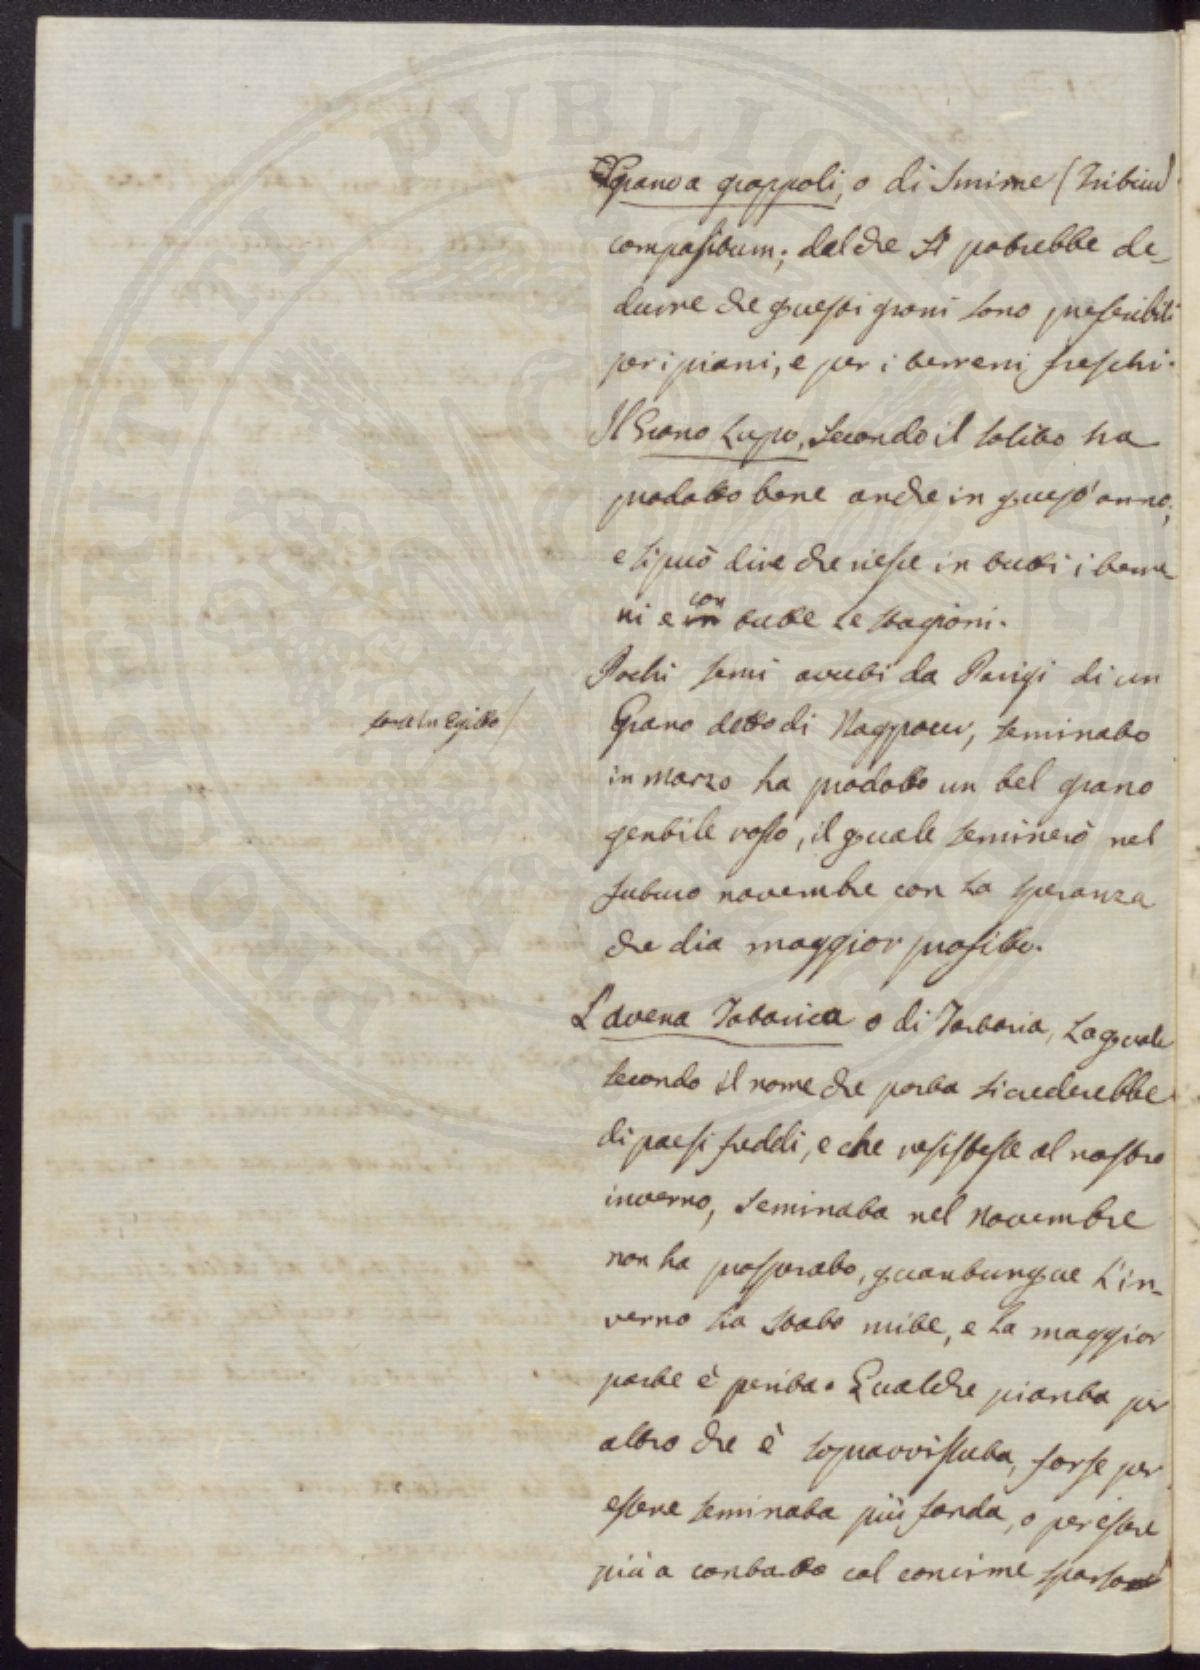 Grano a grappoli, o di Smirne (Tribicu
compositum; dal che si potrebbe de-
durre che questi grani sono preferibili
per i piani, e per i terreni freschi.
Il Grano Lupo, secondo il solito ha
prodotto bene anche in quest'anno;
e si può dire che riesce in tutti i terre
ni e in con tutte le stagioni.
Pochi semi avuti da Parigi di un
Grano detto di seminato
in marzo ha prodotto un bel grano
gentile rosso, il quale seminerò nel
futuro novembre con la speranza
che dia maggior profitto.
L'avena o di la quale
secondo il nome che porta si crederebbe
di paesi freddi, e che resistesse al nostro
inverno, seminata nel Novembre
non ha prosperato, quantunque l'in-
verno sia stato mite, e la maggior
parte è perita. Qualche pianta per
altro che è sopravvissuta, forse per
essere seminata più fonda, o per essere
più a contatto col concime
in Egitto
PUBLICAE UTILITATI